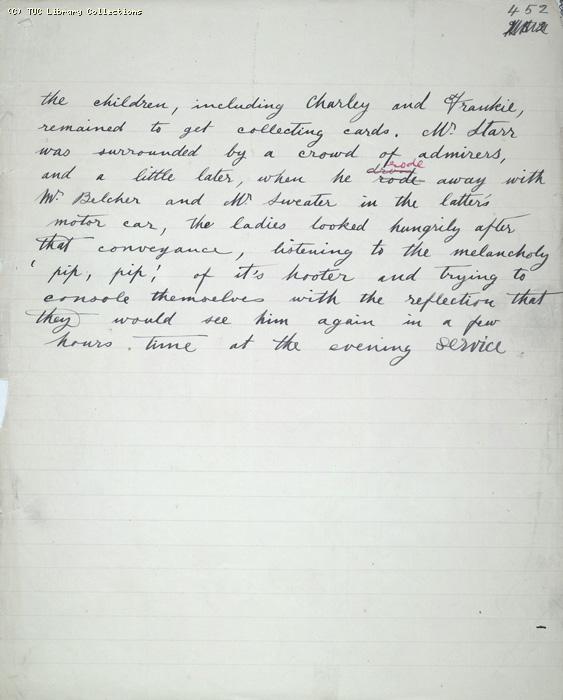 (C) TUC Library Collections
452
the children, including Charley and Frankie,
remained to get collecting cards. Mr Starr
was surrounded by a crowd of admirers,
rode
drove
and a little later, when he rode away with
Mr Belcher and Mr Sweater in the latter's
motor car, the ladies looked hungrily after
that conveyance, listening to the melancholy
'pip, pip,' of it's hooter and trying to
console themselves with the reflection that
they would see him again in a few
hours time at the evening service